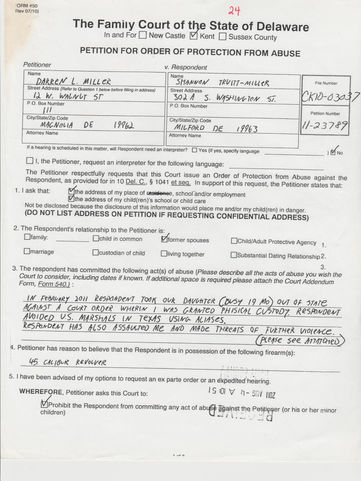 24
ORM 450
Rev 07/10)
The Family Court of the State of Delaware
In and For ☐ New Castle ☑ Kent ☐ Sussex County
PETITION FOR ORDER OF PROTECTION FROM ABUSE
Petitioner
v. Respondent
Name
DARREN L. MILLER
Name
SHANNON TRUITT-MILLER
File Number
Street Address (Refer to Question 1 below before filing in address)
12 W. WALNUT ST
Street Address
302 A S. WASHINGTON ST.
CK10-03037
P.O. Box Number
111
P.O. Box Number
Petition Number
City/State/Zip Code
MAGNOLIA DE 19962
City/State/Zip Code
MILFORD DE 19963
11-23789
Attorney Name
Attorney Name
If a hearing is scheduled in this matter, will Respondent need an interpreter? ☐ Yes (if yes, specify language ) ☑ No
☐ I, the Petitioner, request an interpreter for the following language:
The Petitioner respectfully requests that this Court issue an Order of Protection from Abuse against the
Respondent, as provided for in 10 Del. C., § 1041 et seq. In support of this request, the Petitioner states that:
1. I ask that: ☑ the address of my place of residence, school and/or employment
☑ the address of my child(ren)'s school or child care
Not be disclosed b/c disclosure of this information would place me and/or my child(ren) in danger.
(DO NOT LIST ADDRESS ON PETITION IF REQUESTING CONFIDENTIAL ADDRESS)
2. The Respondent's relationship to the Petitioner is:
☐ family: ☐ child in common ☑ former spouses ☐ Child/Adult Protective Agency 1.
☐ marriage ☐ custodian of child ☐ living together ☐ Substantial Dating Relationship 2.
3.
3. The respondent has committed the following act(s) of abuse (Please describe all the acts of abuse you wish the
Court to consider, including dates if known. If additional space is required please attach the Court Addendum
Form, Form 640.) :
IN FEBRUARY 2011 RESPONDENT TOOK OUR DAUGHTER (ONLY 19 MO) OUT OF STATE
AGAINST A COURT ORDER WHEREIN I WAS GRANTED PHYSICAL CUSTODY. RESPONDENT
AVOIDED U.S. MARSHALS IN TEXAS USING ALIASES.
RESPONDENT HAS ALSO ASSAULTED ME AND MADE THREATS OF FURTHER VIOLENCE.
(PLEASE SEE ATTATCHED)
4. Petitioner has reason to believe that the Respondent is in possession of the following firearm(s):
45 CALIBUR REVOLVER
5. I have been advised of my options to request an ex parte order or an expedited hearing.
WHEREFORE, Petitioner asks this Court to:
☑ Prohibit the Respondent from committing any act of abuse against the Petitioner (or his or her minor
children)